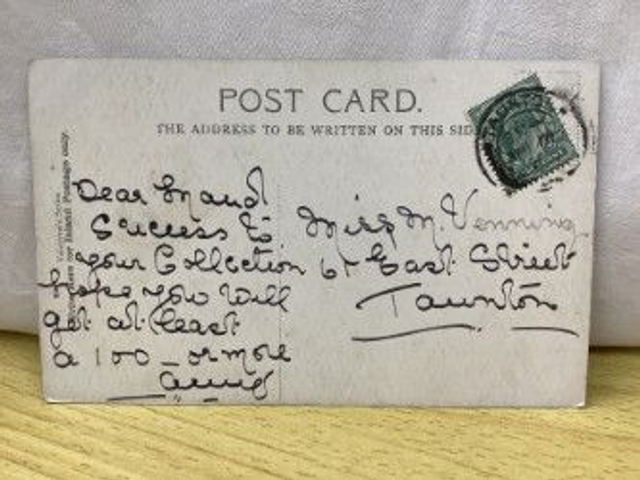 POST CARD.
THE ADDRESS TO BE WRITTEN ON THIS SID
for Inland Postage only.
Dear Maud
Success to
your Collection
hope you will
get at least
a 100 - or more
Miss M. Venning
61 East Street
Taunton